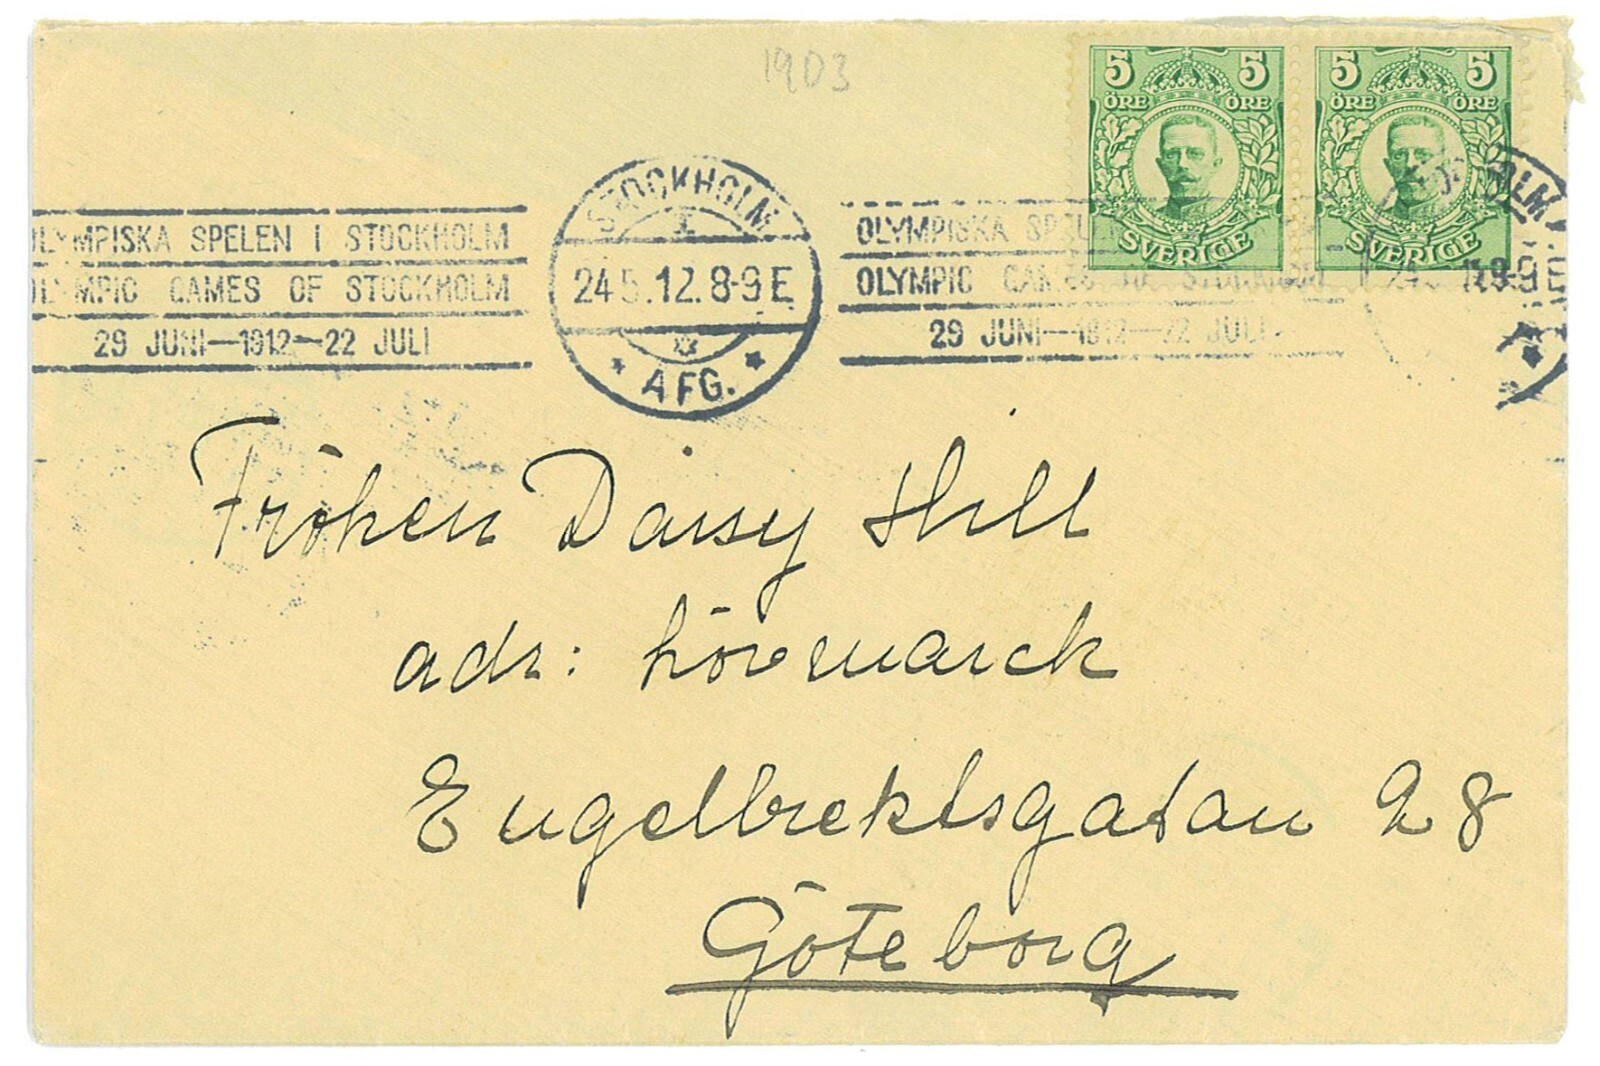 1903
5 5
ÖRE ÖRE
SVERIGE
5 5
ÖRE ÖRE
SVERIGE
OLYMPISKA SPELEN I STOCKHOLM
OLYMPIC GAMES OF STOCKHOLM
29 JUNI—1912—22 JULI
STOCKHOLM
1
24 5.12.8-9 E
AFG.
OLYMPISKA SPELEN
OLYMPIC GAMES OF STOCKHOLM
29 JUNI—1912—22 JULI
STOCKHOLM
8-9 E
Fröken Daisy Hill
adr: Lörsmarck
Engelbrektsgatan 28
Göteborg